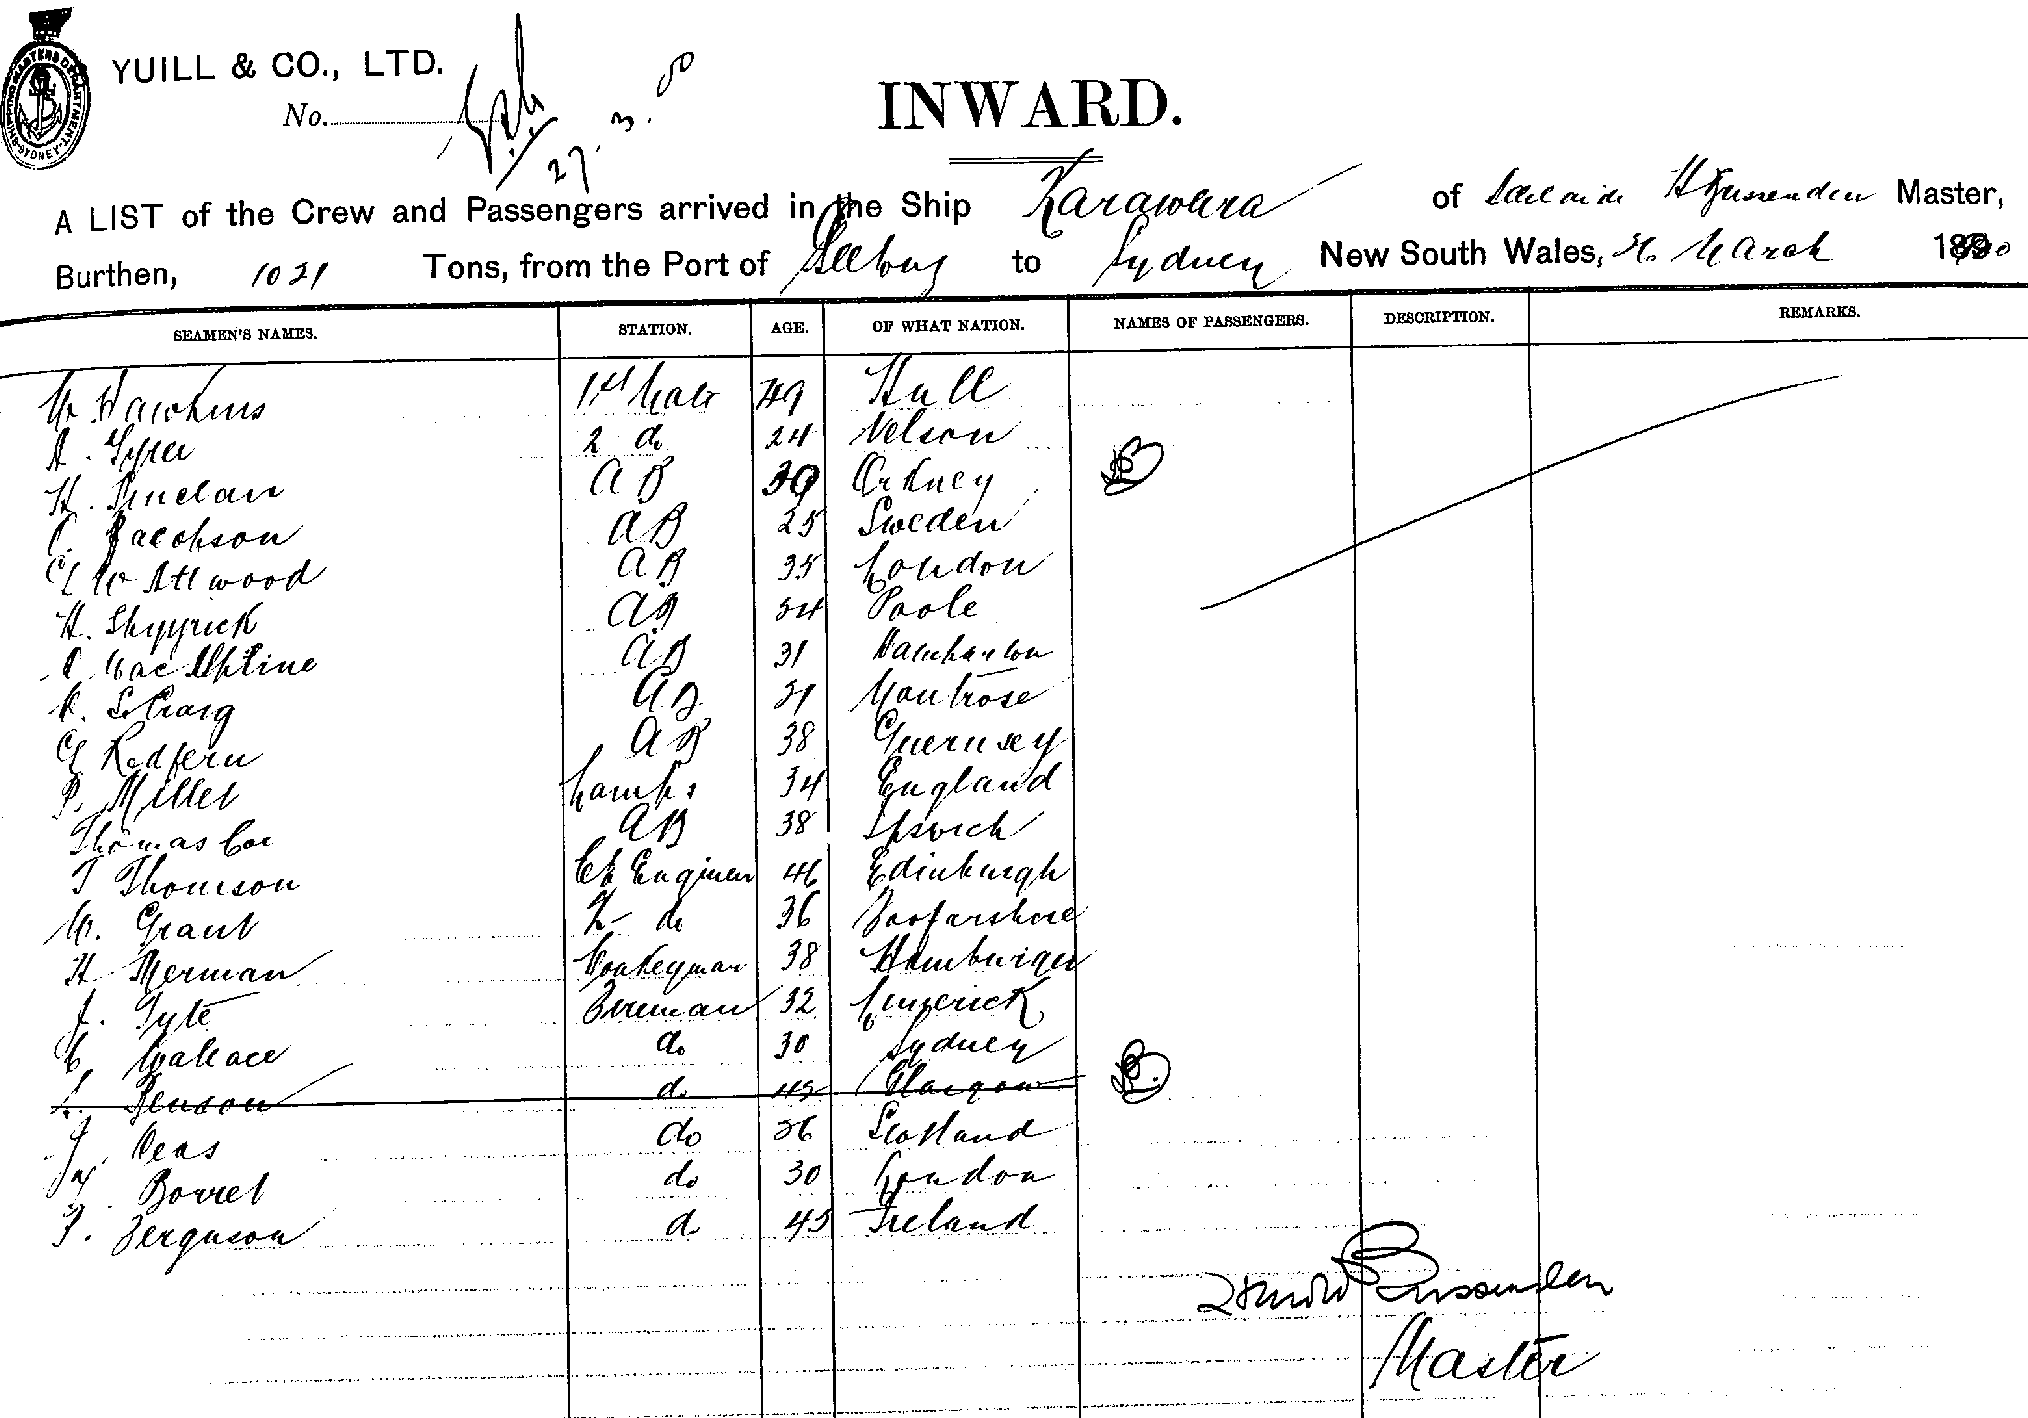 YUILL & CO., LTD.
No.
27. 3. 00
INWARD.
A LIST of the Crew and Passengers arrived in the Ship Karawera of Adelaide Master,
Burthen, 1021 Tons, from the Port of to Sydney New South Wales, March 1900
SEAMEN'S NAMES. STATION. AGE. OF WHAT NATION. NAMES OF PASSENGERS. DESCRIPTION. REMARKS.
W. Hawkins 1st Mate 49 Hull
A. Tyrer 2 do 24 Nelson
H. Sinclair AB 39 Orkney
Jacobson AB 25 Sweden
C W Attwood AB 35 London
H. AB 34 Poole
AB 31
Craig AB Montrose
G Redfern AB 38 Guernsey
P. Millet Lamps 34 England
Thomas Coe AB 38 Ipswich
T Thomson Ch Engineer 46 Edinburgh
W. Grant 2 do 36 Forfarshire
H Merman Donkeyman 38 Hamburger
J. Tyte Fireman 32 Limerick
C Wallace do 30 Sydney
Benson do Glasgow
J. Deas do 36 Scotland
Jas. Borret do 30 London
F. Ferguson do 45 Ireland
Master